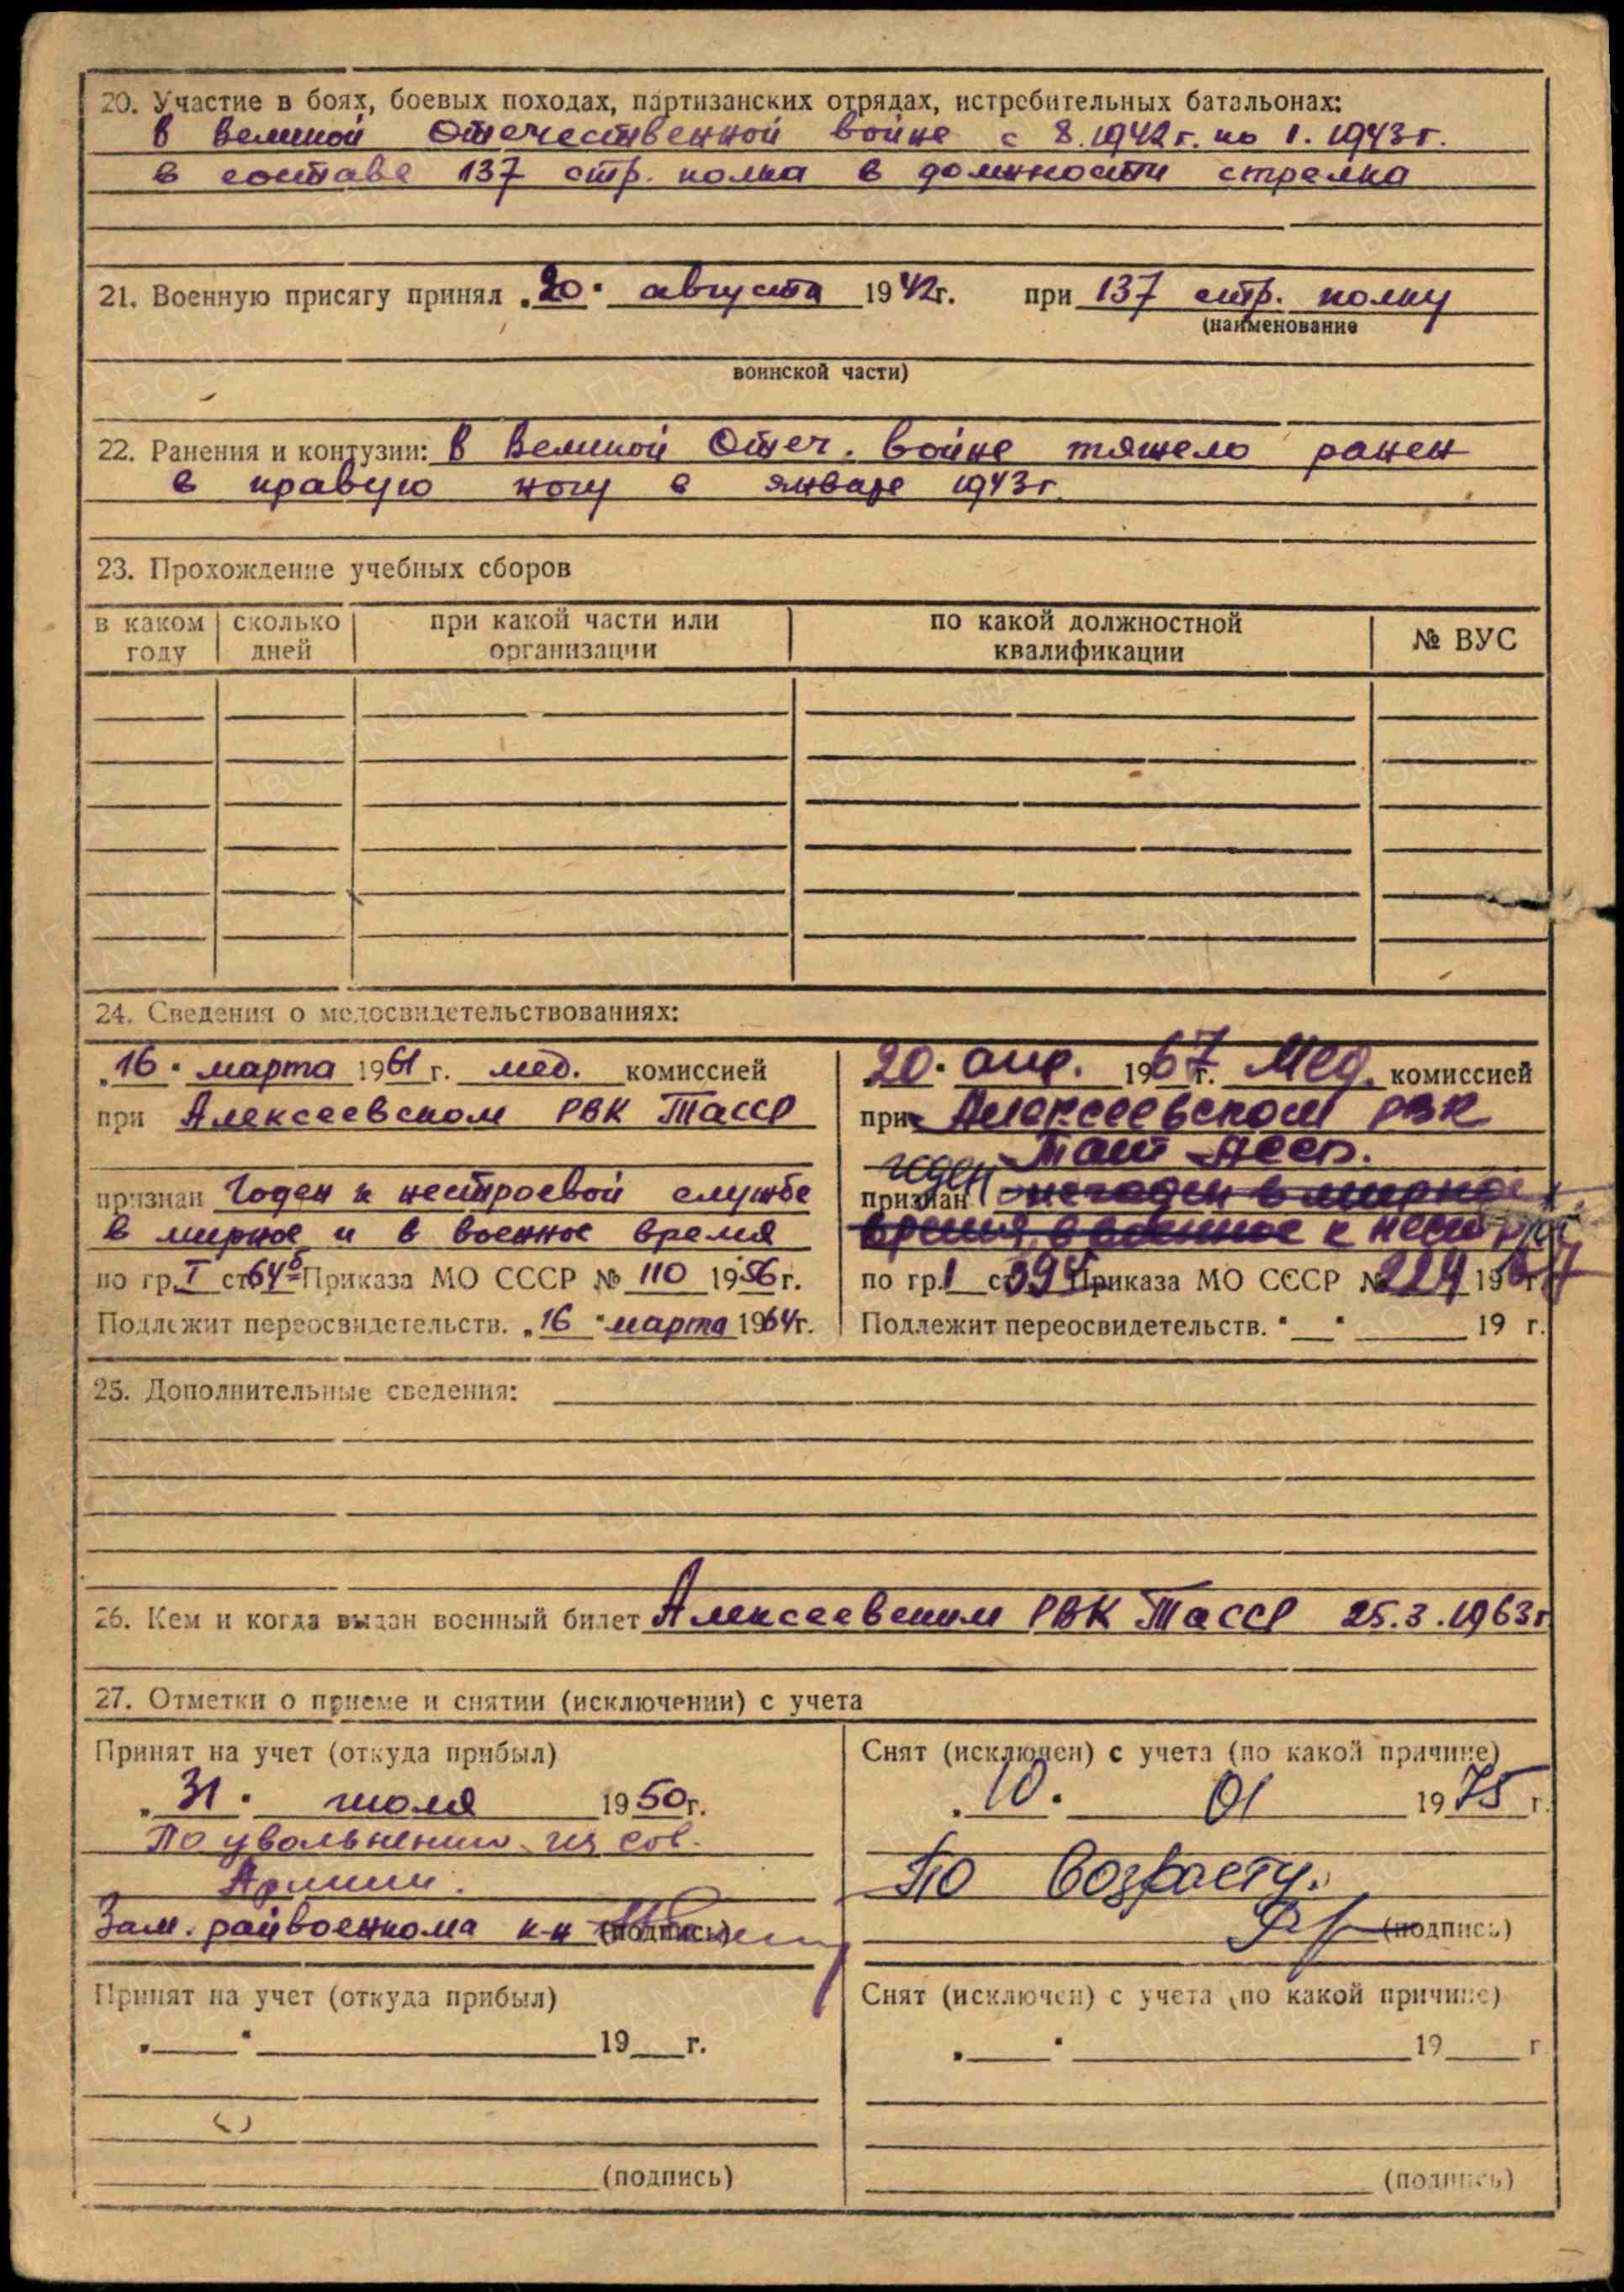 20. Участие в боях, боевых походах, партизанских отрядах, истребительных батальонах:
в великой Отечественной войне с 8.1942г. по 1.1943г.
в составе 137 стр. полка в должности стрелка
21. Военную присягу принял „20" августа 1942г. при 137 стр. полку
(наименование
воинской части)
22. Ранения и контузии: В Великой Отеч. войне тяжело ранен
в правую ногу в январе 1943г.
23. Прохождение учебных сборов
в каком году | сколько дней | при какой части или организации | по какой должностной квалификации | № ВУС
24. Сведения о медосвидетельствованиях:
„16" марта 1961 г. мед. комиссией
при Алексеевском РВК ТАССР
признан Годен к нестроевой службе
в мирное и в военное время
по гр. I ст 64б Приказа МО СССР № 110 1956г.
Подлежит переосвидетельств. „16" марта 1964г.
20. апр. 1967 г. Мед. комиссией
при Алексеевском РВК
Тат АССР.
годен
признан негоден в мирное
время, в военное к нестрой
по гр. 1 ст. Приказа МО СССР № 224 1967 г.
Подлежит переосвидетельств. " " 19 г.
25. Дополнительные сведения:
26. Кем и когда выдан военный билет Алексеевским РВК ТАССР 25.3.1963г
27. Отметки о приеме и снятии (исключении) с учета
Принят на учет (откуда прибыл)
„31" июля 1950г.
По увольнению из сов.
Армии.
Зам. райвоенкома к-н (подпись)
Снят (исключен) с учета (по какой причине)
„10" 01 1975 г.
По возрасту.
(подпись)
Принят на учет (откуда прибыл)
„ " 19 г.
(подпись)
Снят (исключен) с учета (по какой причине)
„ " 19 г
(подпись)